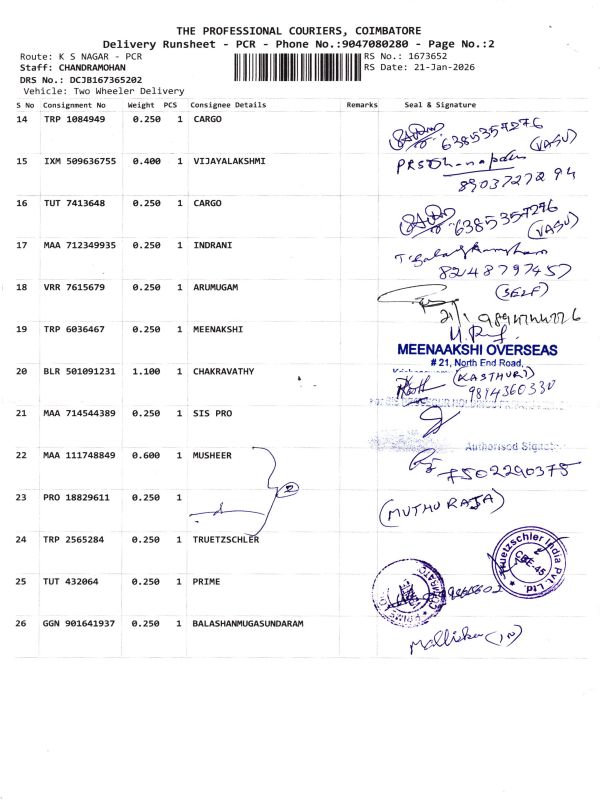 THE PROFESSIONAL COURIERS, COIMBATORE
Delivery Runsheet - PCR - Phone No.:9047080280 - Page No.:2
Route: K S NAGAR - PCR
RS No.: 1673652
Staff: CHANDRAMOHAN
RS Date: 21-Jan-2026
DRS No.: DCJB167365202
Vehicle: Two Wheeler Delivery
S No Consignment No Weight PCS Consignee Details Remarks Seal & Signature
14 TRP 1084949 0.250 1 CARGO
6385357276
(VASU)
15 IXM 509636755 0.400 1 VIJAYALAKSHMI
8903727294
16 TUT 7413648 0.250 1 CARGO
6385357276
(VASU)
17 MAA 712349935 0.250 1 INDRANI
8248797457
18 VRR 7615679 0.250 1 ARUMUGAM
(SELF)
19 TRP 6036467 0.250 1 MEENAKSHI
MEENAAKSHI OVERSEAS
# 21, North End Road,
20 BLR 501091231 1.100 1 CHAKRAVATHY
(KASTHURI)
9894360330
21 MAA 714544389 0.250 1 SIS PRO
Authorised
22 MAA 111748849 0.600 1 MUSHEER
7502290375
2
23 PRO 18829611 0.250 1
(MUTHU RAJA)
24 TRP 2565284 0.250 1 TRUETZSCHLER
Truetzschler India Pvt. Ltd.
CBE-45
25 TUT 432064 0.250 1 PRIME
26 GGN 901641937 0.250 1 BALASHANMUGASUNDARAM